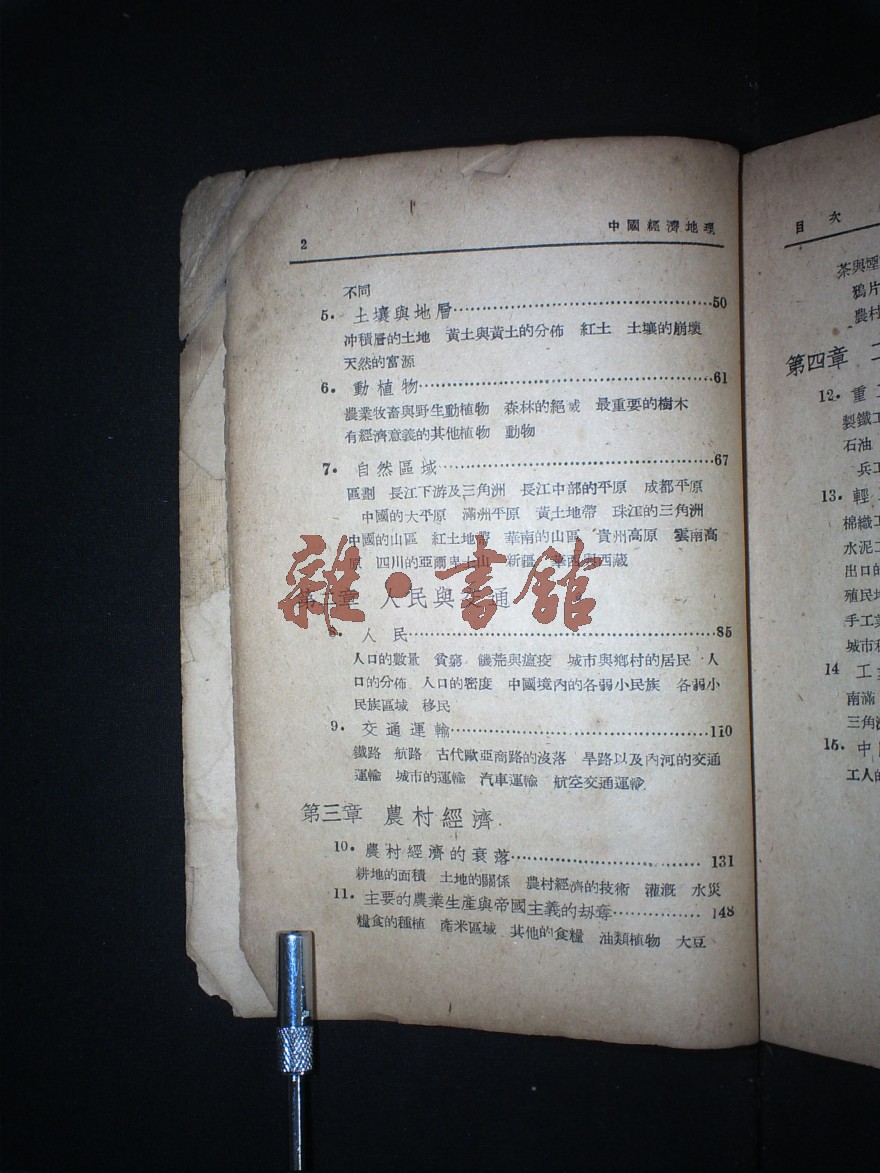 2
中國經濟地理
不同
5. 土壤與地層 50
冲積層的土地 黃土與黃土的分佈 紅土 土壤的崩壞
天然的富源
6. 動植物 61
農業牧畜與野生動植物 森林的絕滅 最重要的樹木
有經濟意義的其他植物 動物
7. 自然區域 67
區劃 長江下游及三角洲 長江中部的平原 成都平原
中國的大平原 滿洲平原 黃土地帶 珠江的三角洲
中國的山區 紅土地帶 華南的山區 貴州高原 雲南高
原 四川的亞爾卑士山 新疆 華西與西藏
雜·書館
第二章 人民與交通
8. 人民 85
人口的數量 貧窮 饑荒與瘟疫 城市與鄉村的居民 人
口的分佈 人口的密度 中國境內的各弱小民族 各弱小
民族區域 移民
9. 交通運輸 110
鐵路 航路 古代歐亞商路的沒落 旱路以及內河的交通
運輸 城市的運輸 汽車運輸 航空交通運輸
第三章 農村經濟
10. 農村經濟的衰落 131
耕地的面積 土地的關係 農村經濟的技術 灌溉 水災
11. 主要的農業生產與帝國主義的刼奪 148
糧食的種植 產米區域 其他的食糧 油類植物 大豆
目次
茶與煙
鴉片
農村
第四章
12. 重工
製鐵工
石油
兵工
13. 輕
棉織工
水泥工
出口的
殖民地
手工業
城市
14 工
南滿
三角洲
15. 中
工人的